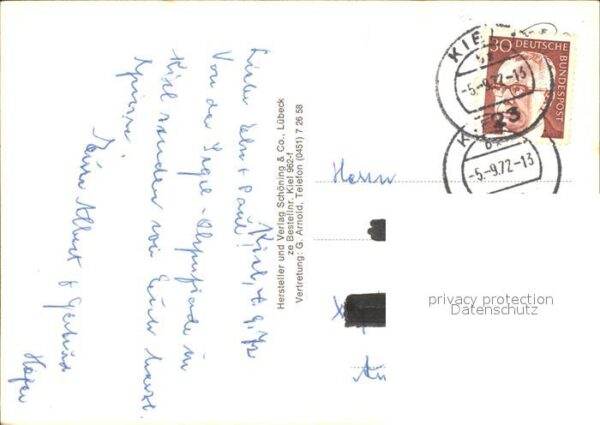 Kiel, 4. 9. 72
Liebe Else + Paul!
Von der Segel-Olympiade in
Kiel senden wir Euch herzl.
Grüsse.
Eure Albert + Gertrud
Hersteller und Verlag Schöning & Co., Lübeck
ze Bestellnr. Kiel 962-f
Vertretung: G. Arnold, Telefon (0451) 7 26 58
30 DEUTSCHE
BUNDESPOST
KIEL
-5.-9.72-13
23
-5.-9.72-13
Herrn
privacy protection
Datenschutz